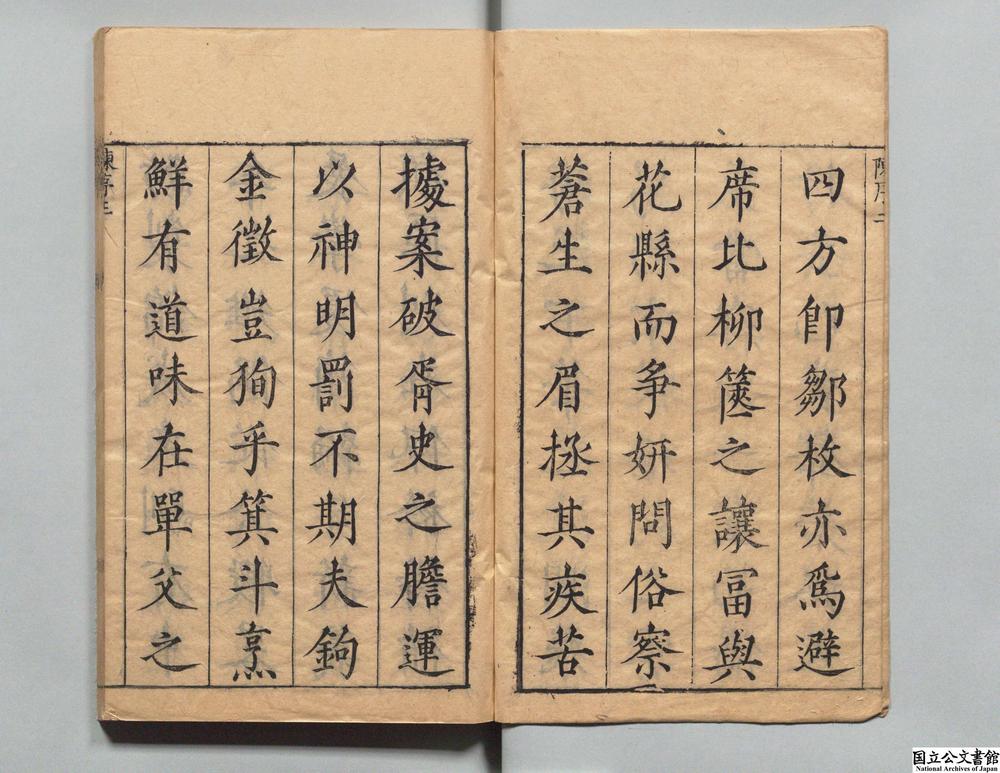 陳序二
四方卽鄒枚亦爲避
席比柳篋之讓冨與
花縣而爭妍問俗察
蒼生之眉拯其疾苦
據案破胥史之膽運
以神明罰不期夫鉤
金徵豈狥乎箕斗烹
鮮有道味在單父之
陳序三
国立公文書館
National Archives of Japan